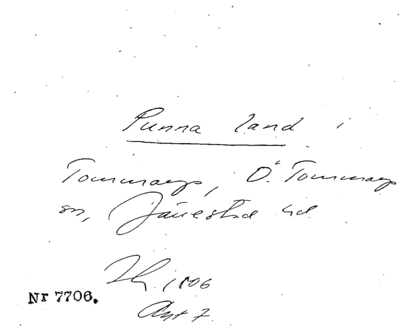 Punna land i
Tommarp, Ö. Tommarp
sn, Järrestad hd
1806
Akt 7.
Nr 7706.